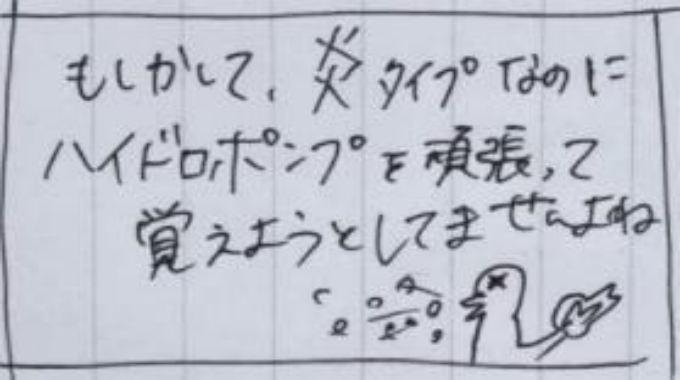 もしかして、炎タイプなのに
ハイドロポンプを頑張って
覚えようとしてませんよね